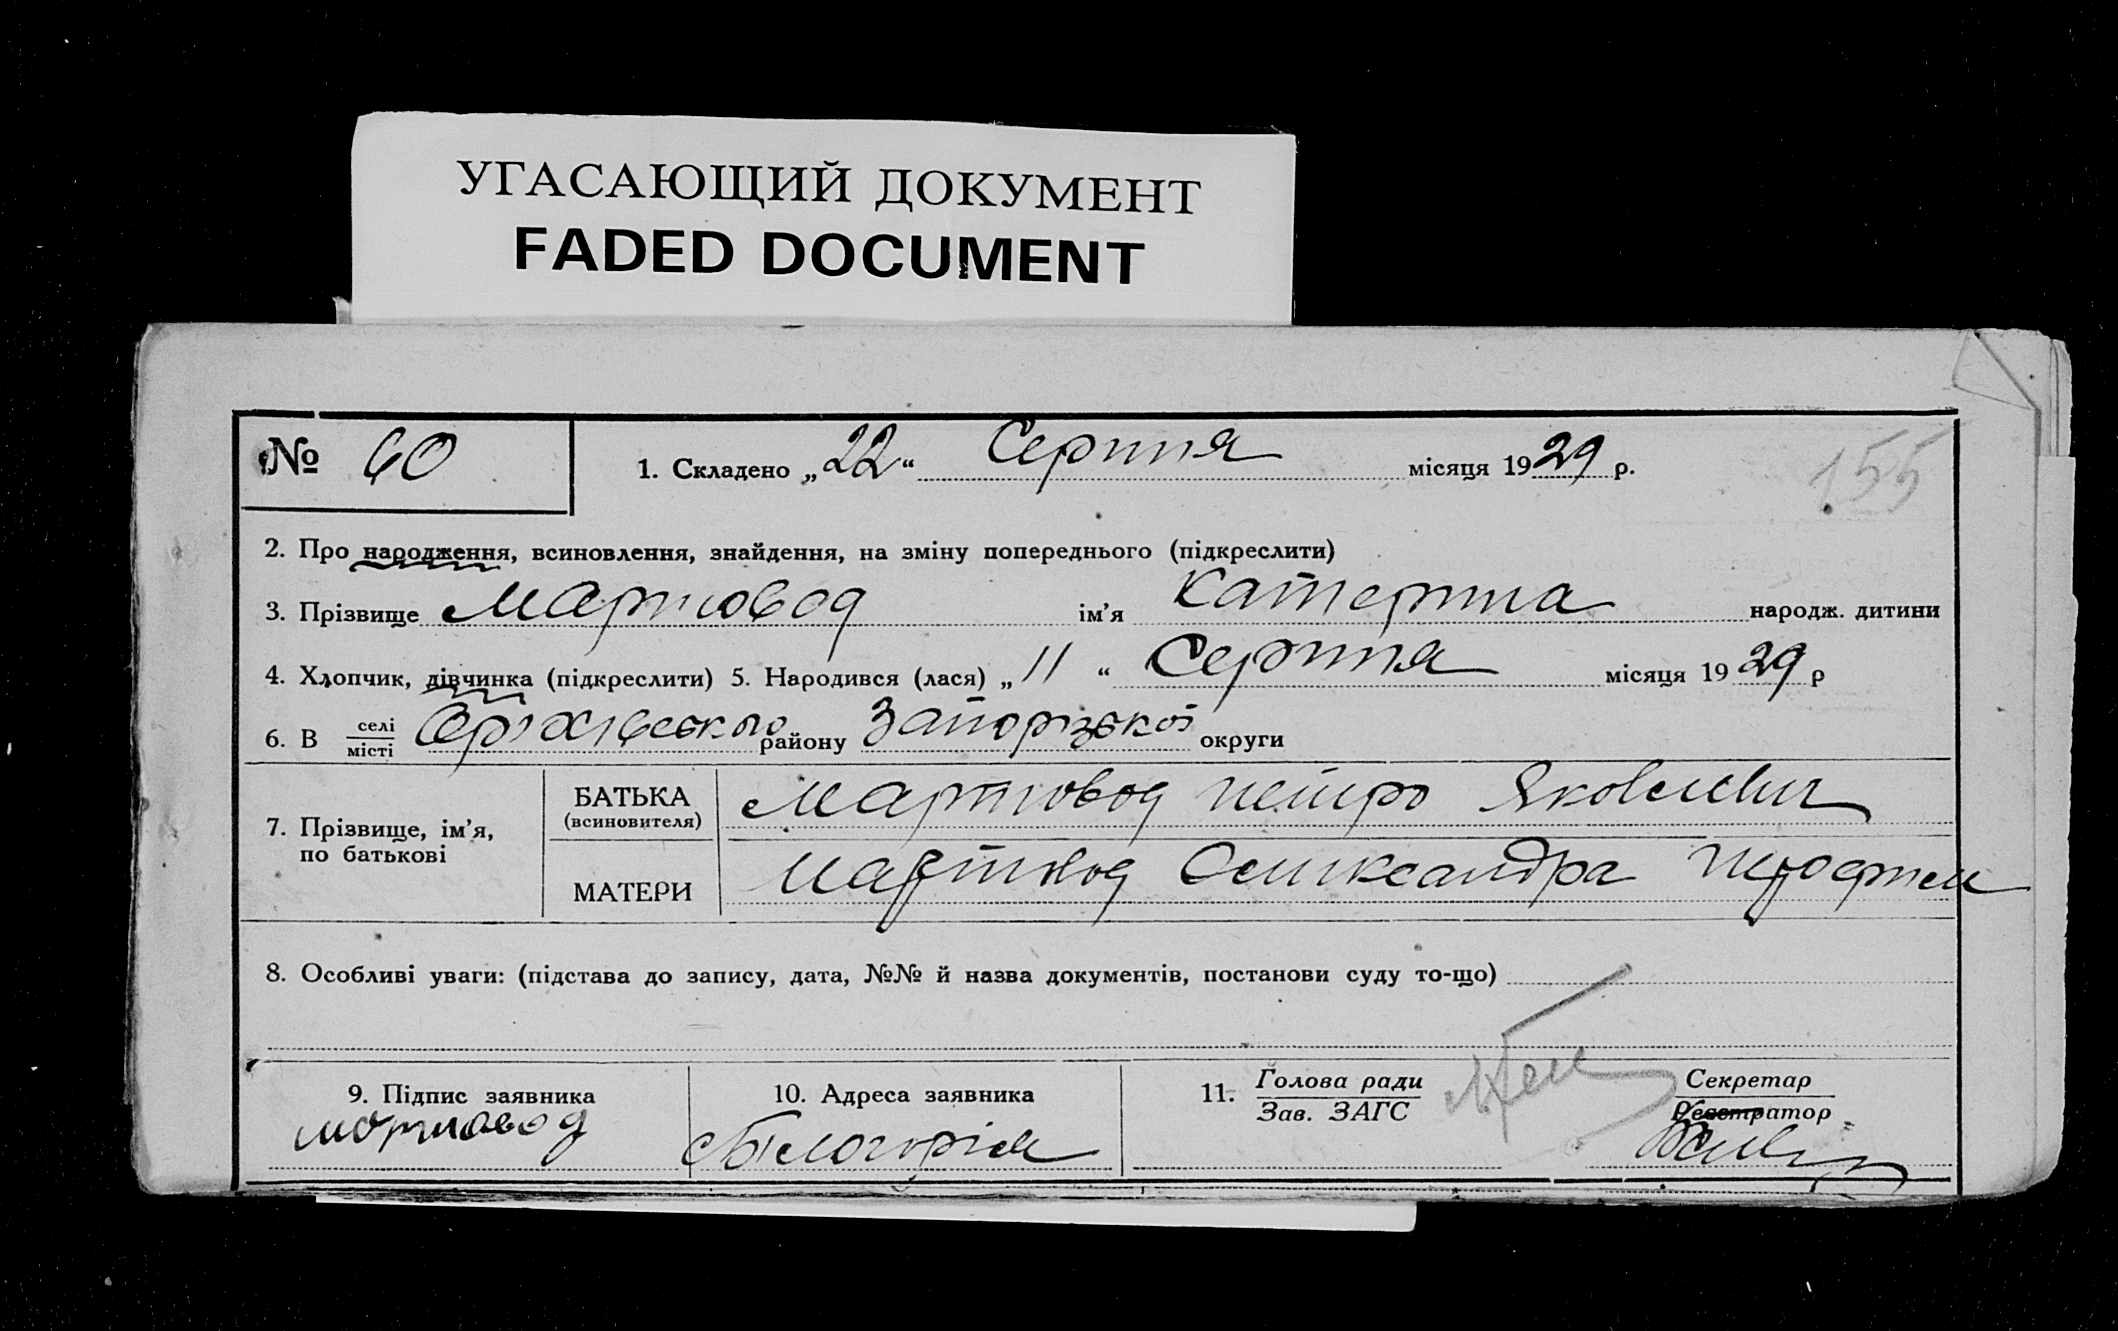 УГАСАЮЩИЙ ДОКУМЕНТ
FADED DOCUMENT
№ 60
1. Складено „22“ Серпня місяця 1929 р.
155
2. Про народження, всиновлення, знайдення, на зміну попереднього (підкреслити)
3. Прізвище Мартовод ім’я Катерина народж. дитини
4. Хлопчик, дівчинка (підкреслити) 5. Народився (лася) „11“ Серпня місяця 1929 р
6. В селі місті Оріхівського району Запорізької округи
7. Прізвище, ім’я, по батькові
БАТЬКА (всиновителя) Мартовод Петро Яковлевич
МАТЕРИ Мартовод Олександра
8. Особливі уваги: (підстава до запису, дата, №№ й назва документів, постанови суду то-що)
9. Підпис заявника
Мортовод
10. Адреса заявника
11. Голова ради
Зав. ЗАГС
Секретар
Реєстратор